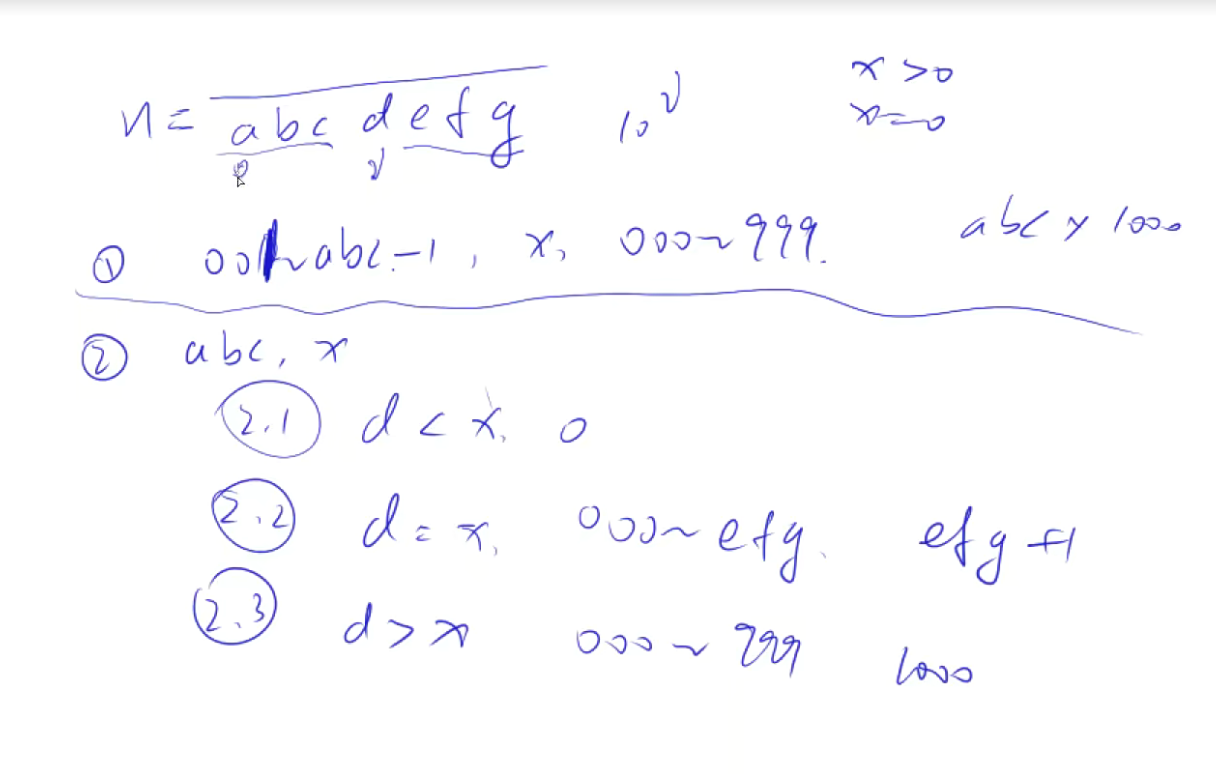 n = abc d efg 10^v x > 0
l v x = 0
① 001~abc-1, x, 000~999. abc × 1000
② abc, x
2.1 d < x, 0
2.2 d = x, 000~efg. efg+1
2.3 d > x 000~999 1000